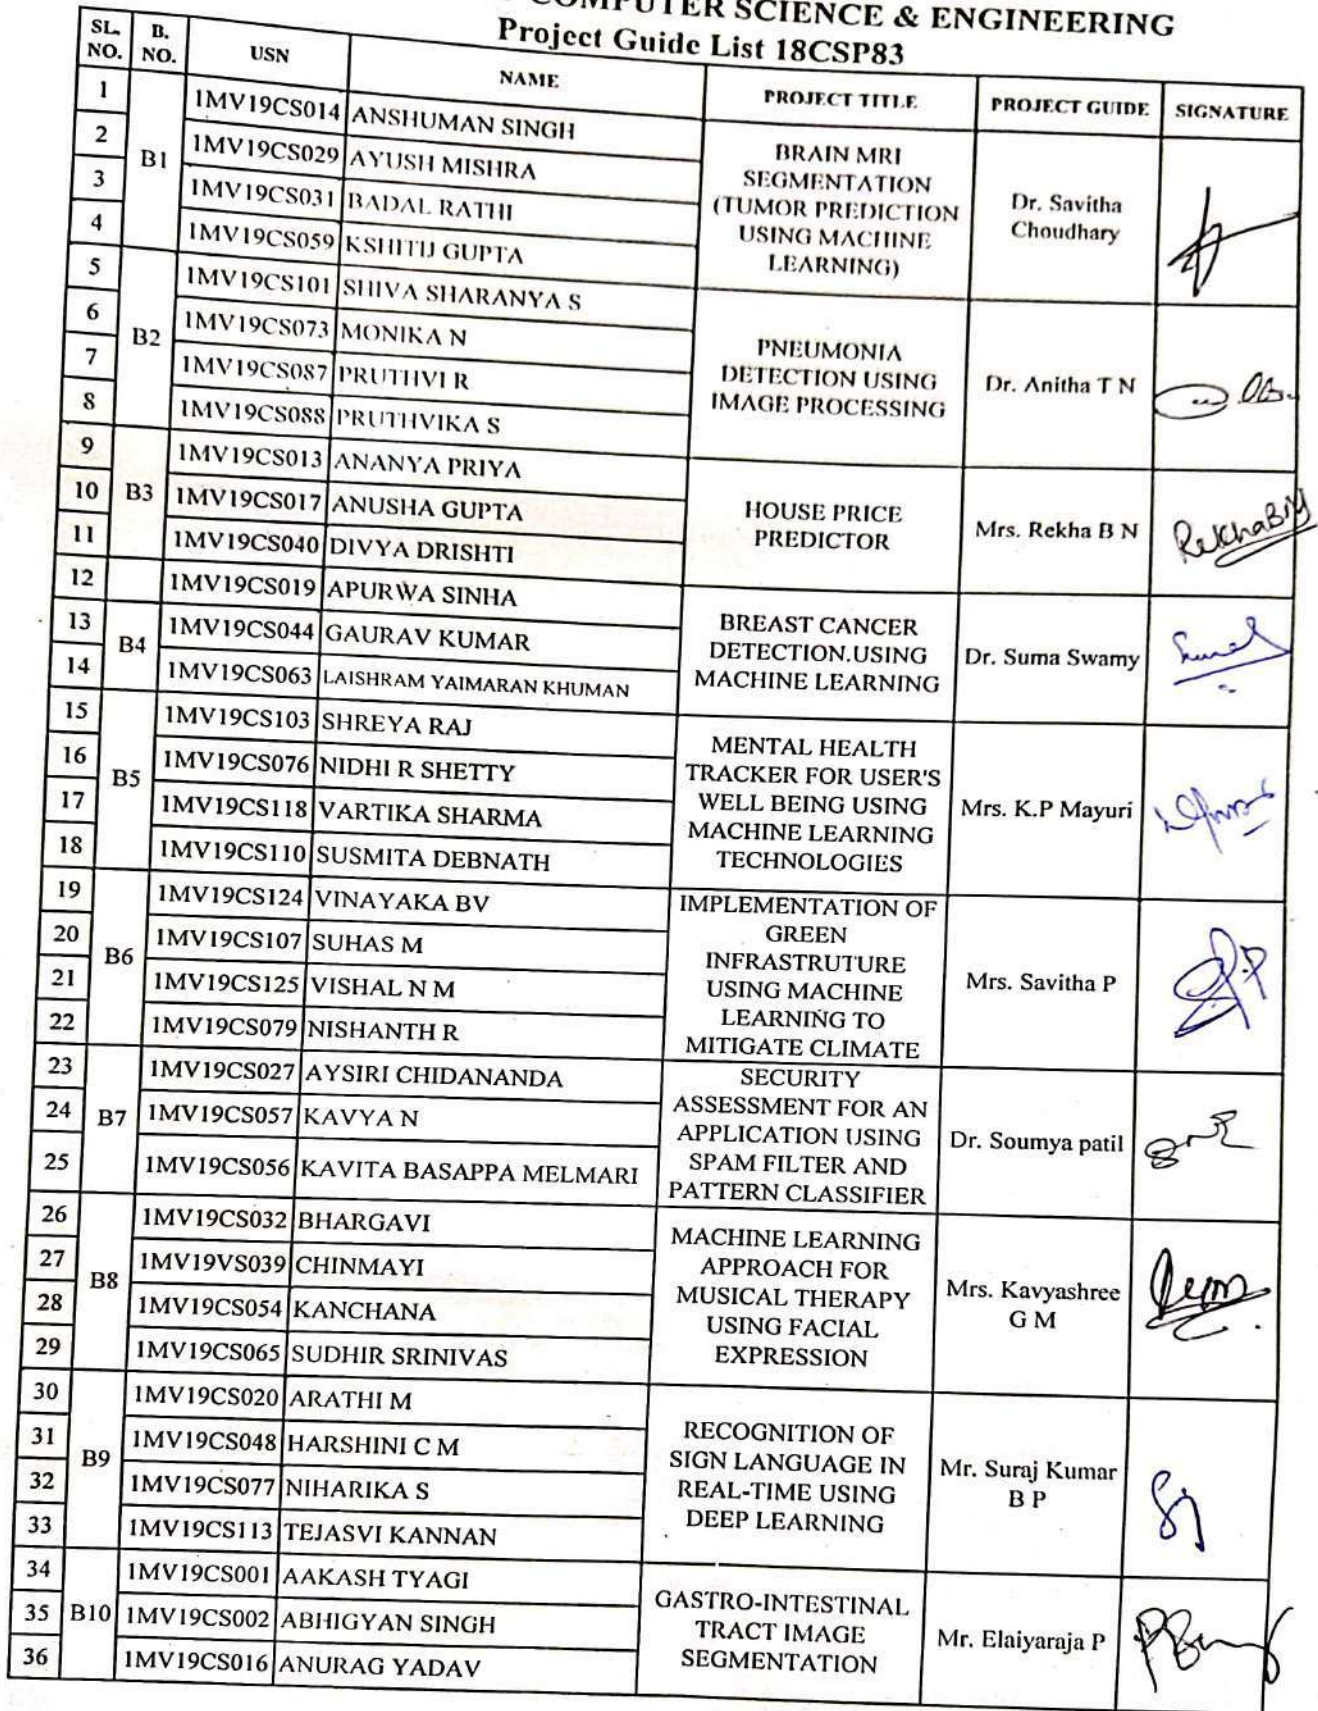 COMPUTER SCIENCE & ENGINEERING
Project Guide List 18CSP83
SL. NO. B. NO. USN NAME PROJECT TITLE PROJECT GUIDE SIGNATURE
1 B1 1MV19CS014 ANSHUMAN SINGH BRAIN MRI SEGMENTATION (TUMOR PREDICTION USING MACHINE LEARNING) Dr. Savitha Choudhary
2 1MV19CS029 AYUSH MISHRA
3 1MV19CS031 BADAL RATHI
4 1MV19CS059 KSHITIJ GUPTA
5 B2 1MV19CS101 SHIVA SHARANYA S PNEUMONIA DETECTION USING IMAGE PROCESSING Dr. Anitha T N
6 1MV19CS073 MONIKA N
7 1MV19CS087 PRUTHVI R
8 1MV19CS088 PRUTHVIKA S
9 B3 1MV19CS013 ANANYA PRIYA HOUSE PRICE PREDICTOR Mrs. Rekha B N RekhaBN
10 1MV19CS017 ANUSHA GUPTA
11 1MV19CS040 DIVYA DRISHTI
12 1MV19CS019 APURWA SINHA BREAST CANCER DETECTION.USING MACHINE LEARNING Dr. Suma Swamy
13 B4 1MV19CS044 GAURAV KUMAR
14 1MV19CS063 LAISHRAM YAIMARAN KHUMAN
15 B5 1MV19CS103 SHREYA RAJ MENTAL HEALTH TRACKER FOR USER'S WELL BEING USING MACHINE LEARNING TECHNOLOGIES Mrs. K.P Mayuri
16 1MV19CS076 NIDHI R SHETTY
17 1MV19CS118 VARTIKA SHARMA
18 1MV19CS110 SUSMITA DEBNATH
19 B6 1MV19CS124 VINAYAKA BV IMPLEMENTATION OF GREEN INFRASTRUTURE USING MACHINE LEARNING TO MITIGATE CLIMATE Mrs. Savitha P
20 1MV19CS107 SUHAS M
21 1MV19CS125 VISHAL N M
22 1MV19CS079 NISHANTH R
23 B7 1MV19CS027 AYSIRI CHIDANANDA SECURITY ASSESSMENT FOR AN APPLICATION USING SPAM FILTER AND PATTERN CLASSIFIER Dr. Soumya patil
24 1MV19CS057 KAVYA N
25 1MV19CS056 KAVITA BASAPPA MELMARI
26 B8 1MV19CS032 BHARGAVI MACHINE LEARNING APPROACH FOR MUSICAL THERAPY USING FACIAL EXPRESSION Mrs. Kavyashree G M
27 1MV19VS039 CHINMAYI
28 1MV19CS054 KANCHANA
29 1MV19CS065 SUDHIR SRINIVAS
30 B9 1MV19CS020 ARATHI M RECOGNITION OF SIGN LANGUAGE IN REAL-TIME USING DEEP LEARNING Mr. Suraj Kumar B P
31 1MV19CS048 HARSHINI C M
32 1MV19CS077 NIHARIKA S
33 1MV19CS113 TEJASVI KANNAN
34 B10 1MV19CS001 AAKASH TYAGI GASTRO-INTESTINAL TRACT IMAGE SEGMENTATION Mr. Elaiyaraja P
35 1MV19CS002 ABHIGYAN SINGH
36 1MV19CS016 ANURAG YADAV